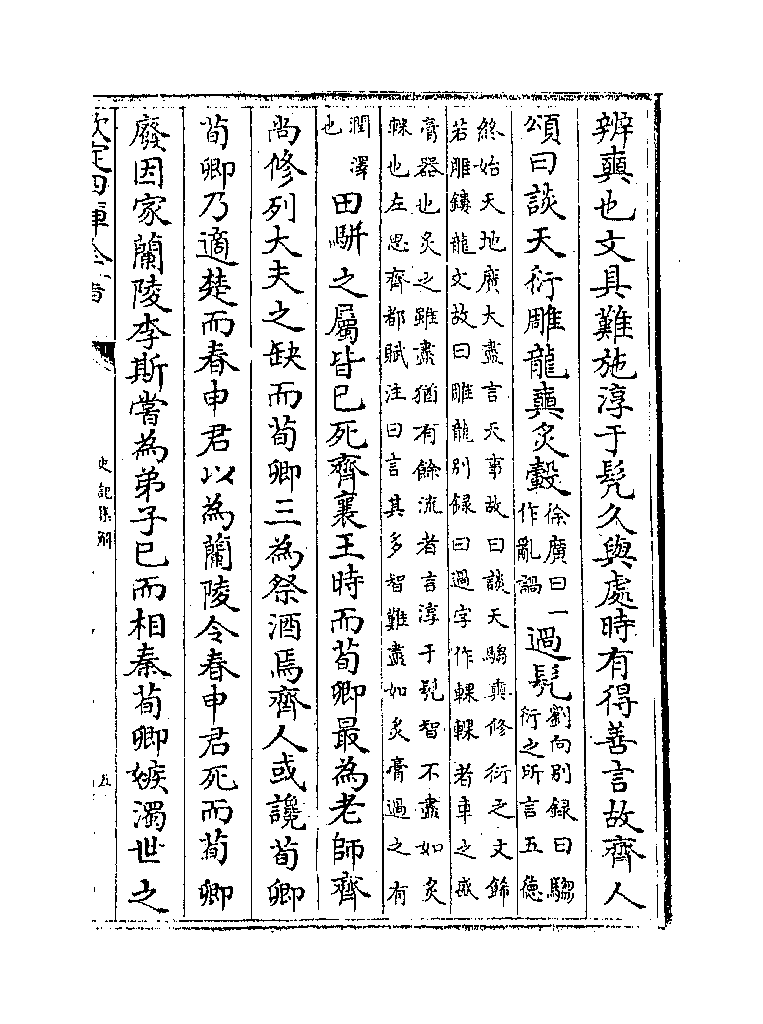 辨奭也文具難施淳于髠久與處時有得善言故齊人
頌曰談天衍雕龍奭炙轂徐廣曰一作亂調過髠劉向別録曰騶衍之所言五德
終始天地廣大盡言天事故曰談天騶奭修衍之文飾
若雕鏤龍文故曰雕龍别録曰過字作輠輠者車之盛
膏器也炙之雖盡猶有餘流者言淳于髠智不盡如炙
輠也左思齊都賦注曰言其多智難盡如炙膏過之有
潤澤也田駢之屬皆已死齊襄王時而荀卿最為老師齊
尚修列大夫之缺而荀卿三為祭酒焉齊人或讒荀卿
荀卿乃適楚而春申君以為蘭陵令春申君死而荀卿
廢因家蘭陵李斯嘗為弟子已而相秦荀卿嫉濁世之
欽定四庫全書
史記集解
五